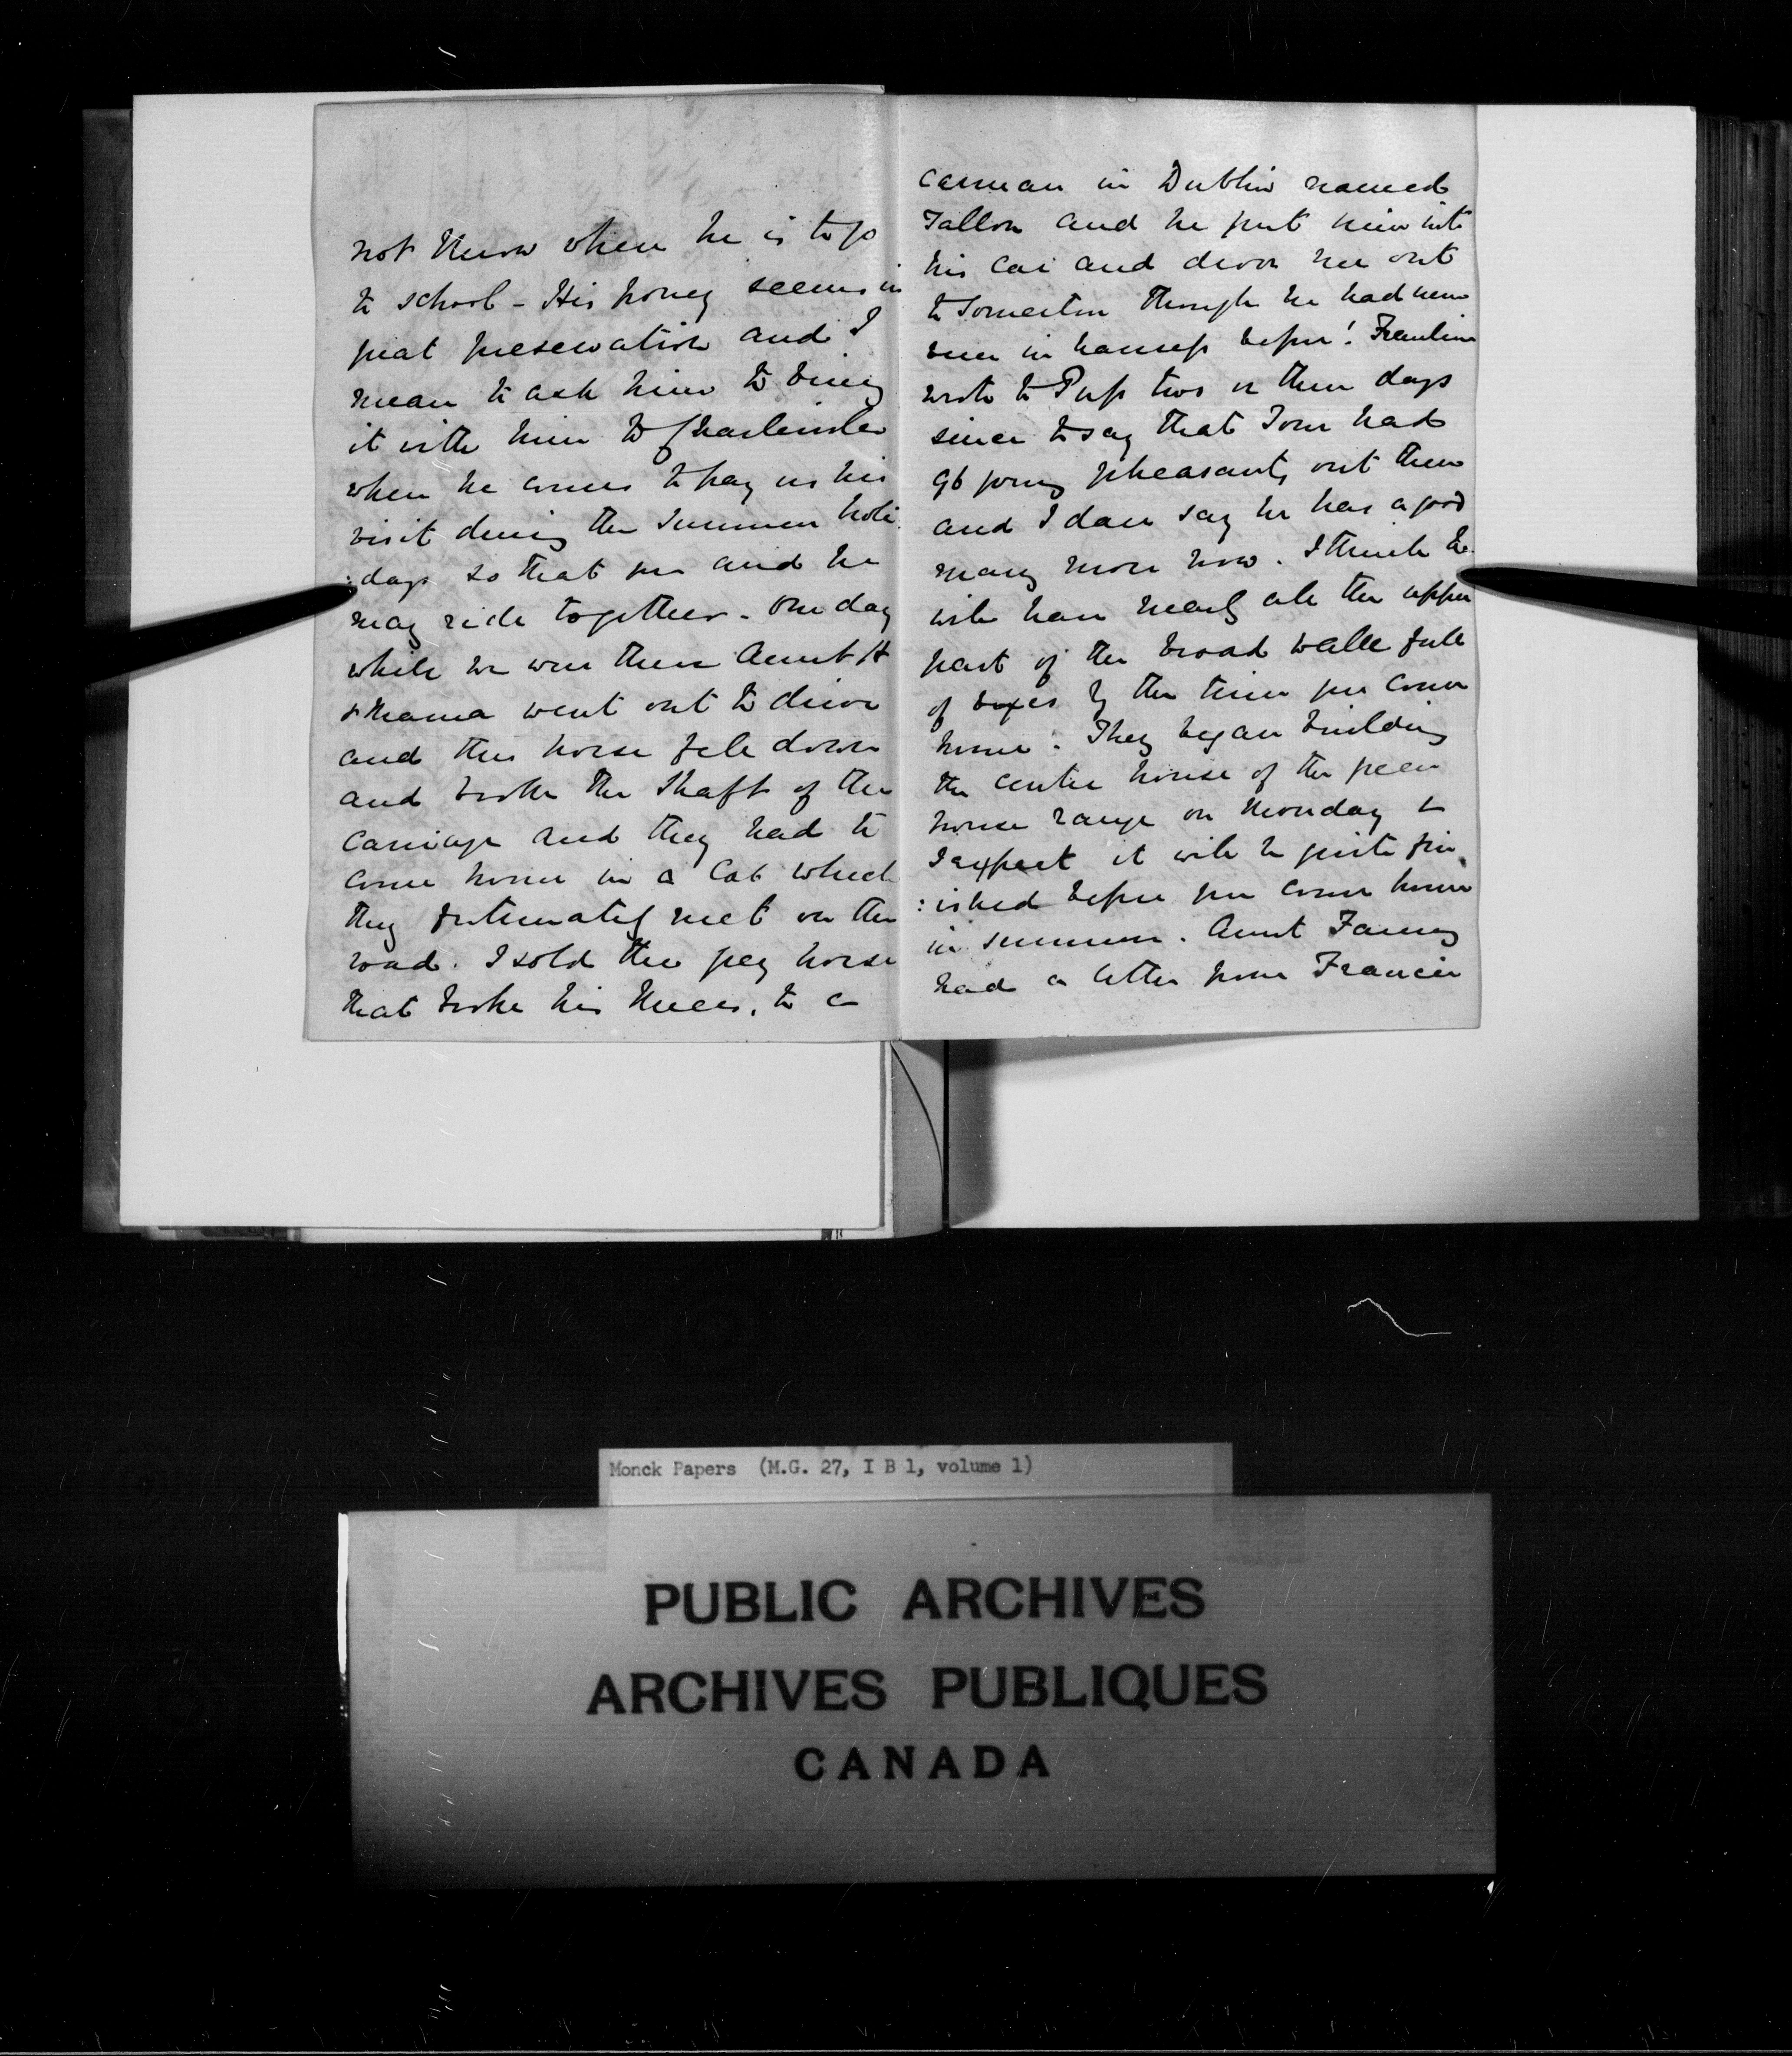 not know when he is to go
to school - His poney seems in
great preservation and I
mean to ask him to bring
it with him to Charleville
when he comes to pay us his
visit during the Summer holi
:days so that you and he
may ride together - One day
while we were there Aunt H
& Mama went out to drive
and the horse fell down
and broke the shaft of the
carriage and they had to
come home in a Cab which
they fortunately met on the
road. I sold the grey horse
that broke his knees, to a
carman in Dublin named
Tallon and he put him into
his car and drove me out
to Somerton though he had never
been in harness before! Frankin
wrote to Pup two or three days
since to say that Tom had
96 young pheasants out then
and I dare say he has a good
many more now. I think he
will have nearly all the upper
part of the broad walk full
of boxes by the time you come
home. They began building
the centre house of the green
house range on Monday &
I expect it will be quite fin
:ished before you come home
in summer. Aunt Fanny
had a letter from Francis
Monck Papers (M.G. 27, I B 1, volume 1)
PUBLIC ARCHIVES
ARCHIVES PUBLIQUES
CANADA